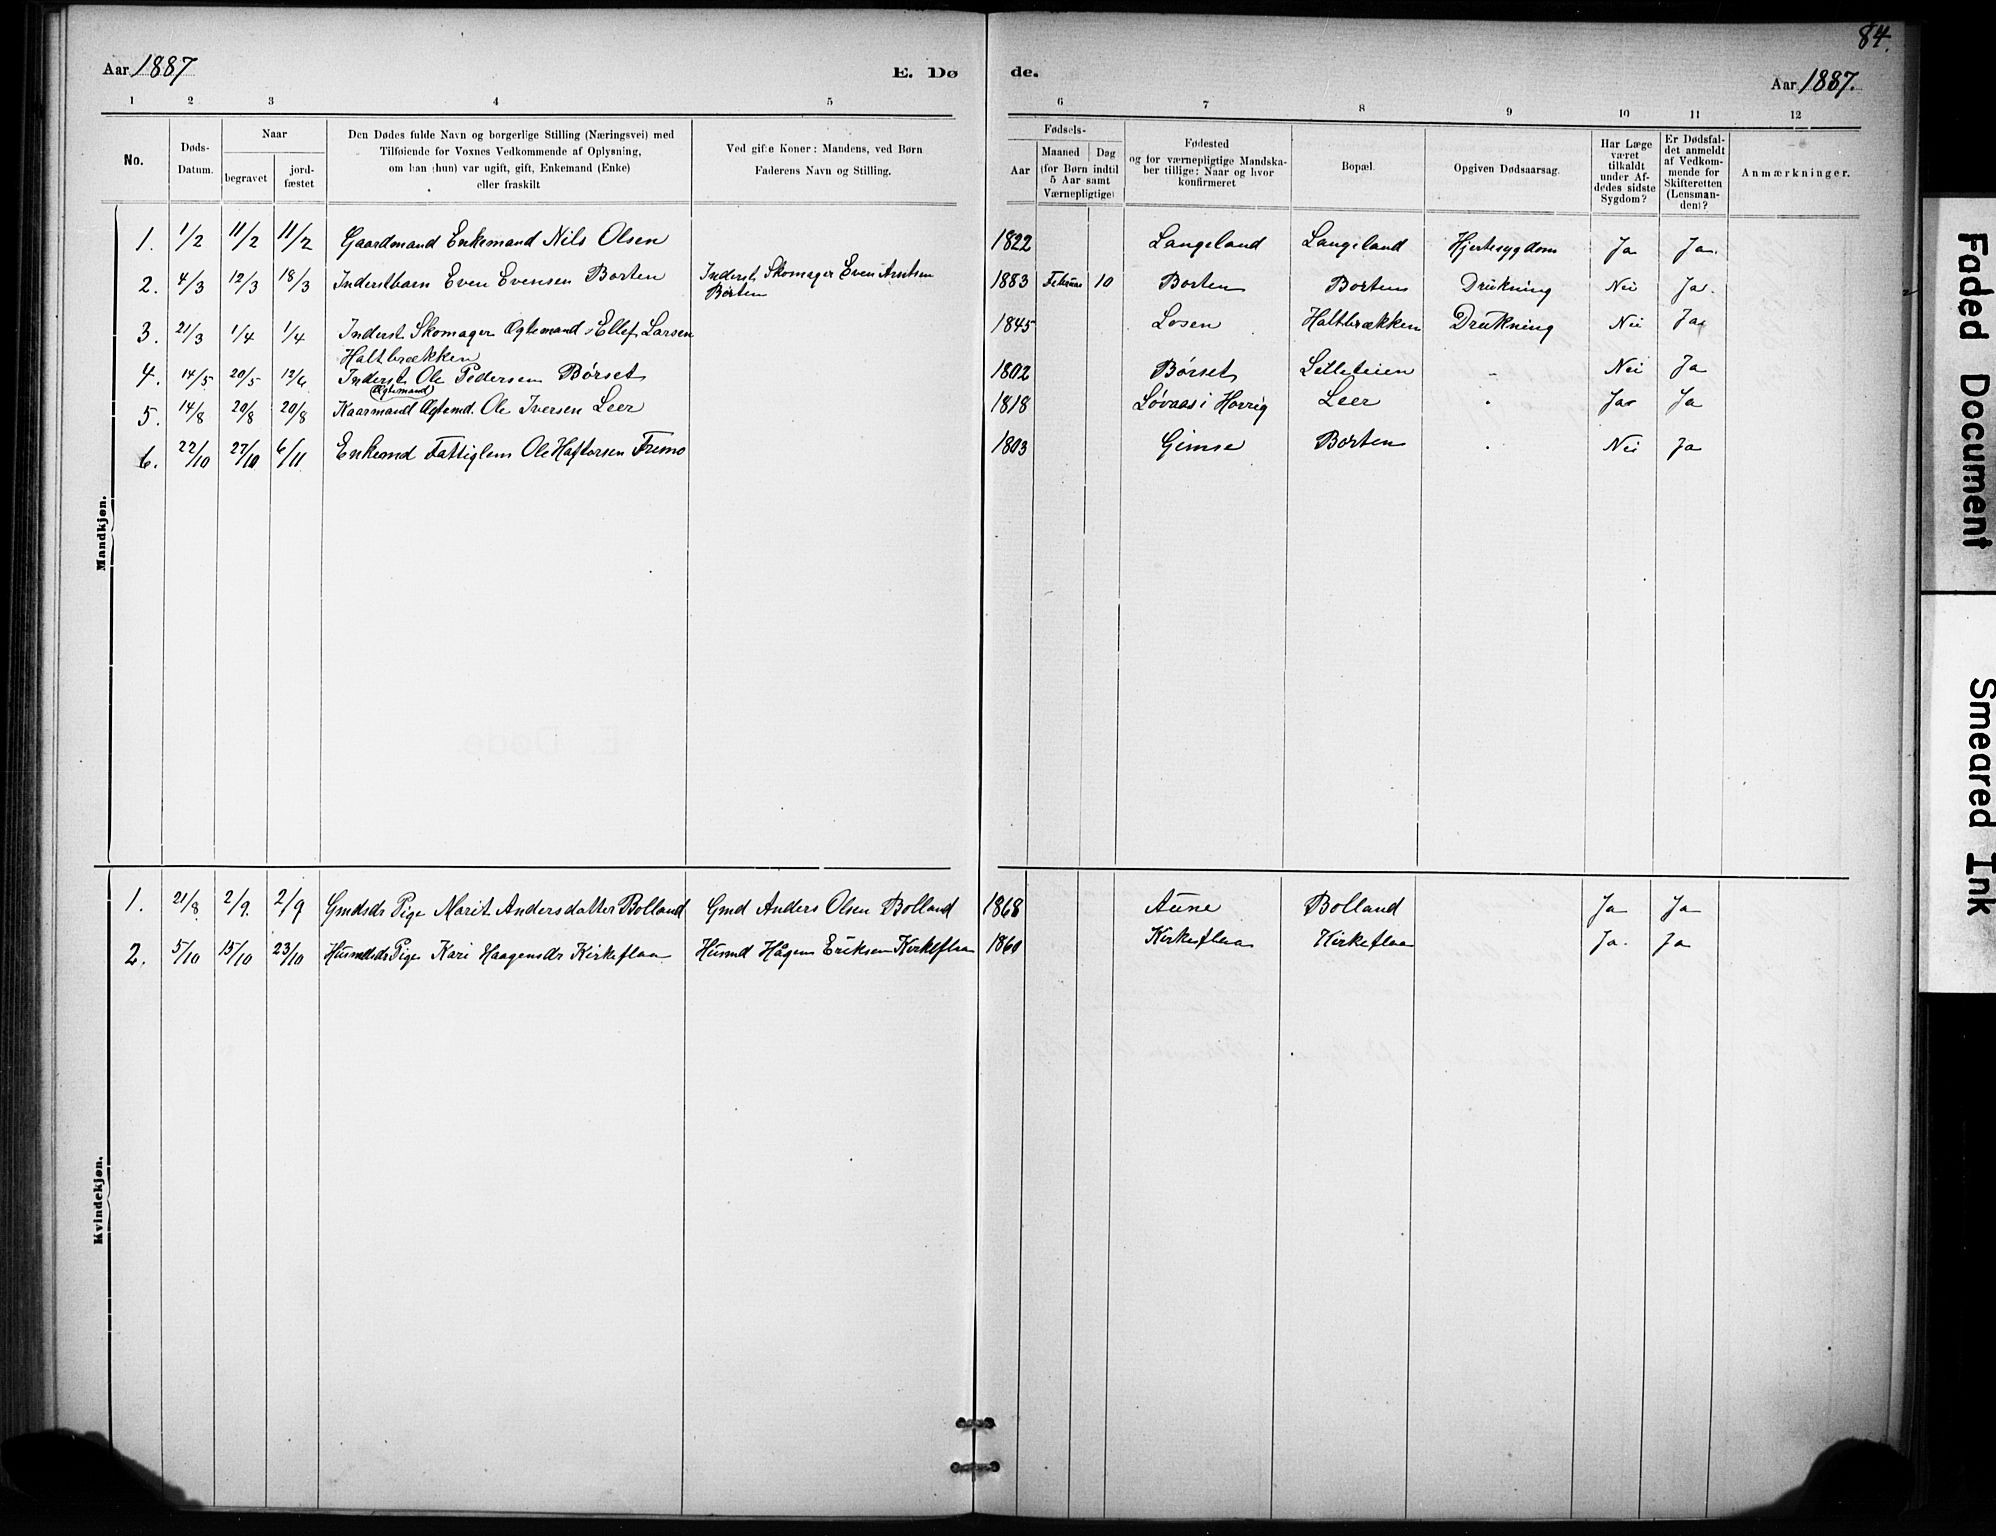 84.
Aar 1887
E. Dø
de.
Aar 1887.
1 2 3 4 5 6 7 8 9 10 11 12
No.
Døds-
Datum.
Naar
begravet
jord-
fæstet
Den Dødes fulde Navn og borgerlige Stilling (Næringsvei) med
Tilføiende for Voxnes Vedkommende af Oplysning,
om han (hun) var ugift, gift, Enkemand (Enke)
eller fraskilt
Ved gifte Koner: Mandens, ved Børn
Faderens Navn og Stilling.
Fødsels-
Aar
Maaned
Dag
(for Børn indtil
5 Aar samt
Værnepligtige)
Fødested
og for værnepligtige Mandska-
ber tillige: Naar og hvor
konfirmeret
Bopæl.
Opgiven Dødsaarsag.
Har Læge
været
tilkaldt
under Af-
dødes sidste
Sygdom?
Er Dødsfal-
det anmeldt
af Vedkom-
mende for
Skifteretten
(Lensman-
den)?
Anmærkninger.
Mandkjøn.
1. 1/2 11/2 11/2 Gaardmand Enkemand Nils Olsen 1822 Langeland Langeland Hjertesygdom Ja Ja.
2. 4/3 12/3 18/3 Inderstbarn Even Evensen Borten Inderst Skomager Even Arntsen 1883 Februar 10 Borten Borten Drukning Nei Ja.
Borten
3. 21/3 1/4 1/4 Inderst Skomager Ogtemand Ellef Larsen 1845 Losen Haltbrækken Drukning Nei Ja
Haltbrækken
4. 14/5 20/5 12/6 Inderst Ole Pedersen Børset 1802 Børset Litleteien - Nei Ja
(Ogtemand)
5. 14/8 20/8 20/8 Kaarmand Ogtemd. Ole Iversen Leer 1818 Løvaas i Hovrig Leer Ja Ja
6. 22/10 27/10 6/11 Enkemd Fattiglem Ole Haftorsen Fremo 1803 Gimse Borten Nei Ja
Kvindekjøn.
1. 21/8 2/9. 2/9 Gmdsdr Pige Marit Andersdatter Bolland Gmd Anders Olsen Bolland 1868 Aune Bolland Ja Ja
2. 5/10 15/10 23/10 Husmdsdr Pige Kari Haagensdr Kirkeflaa Husmd Hågen Eriksen Kirkeflaa 1860 Kirkeflaa Kirkeflaa Ja. Ja
Faded Document
Smeared Ink